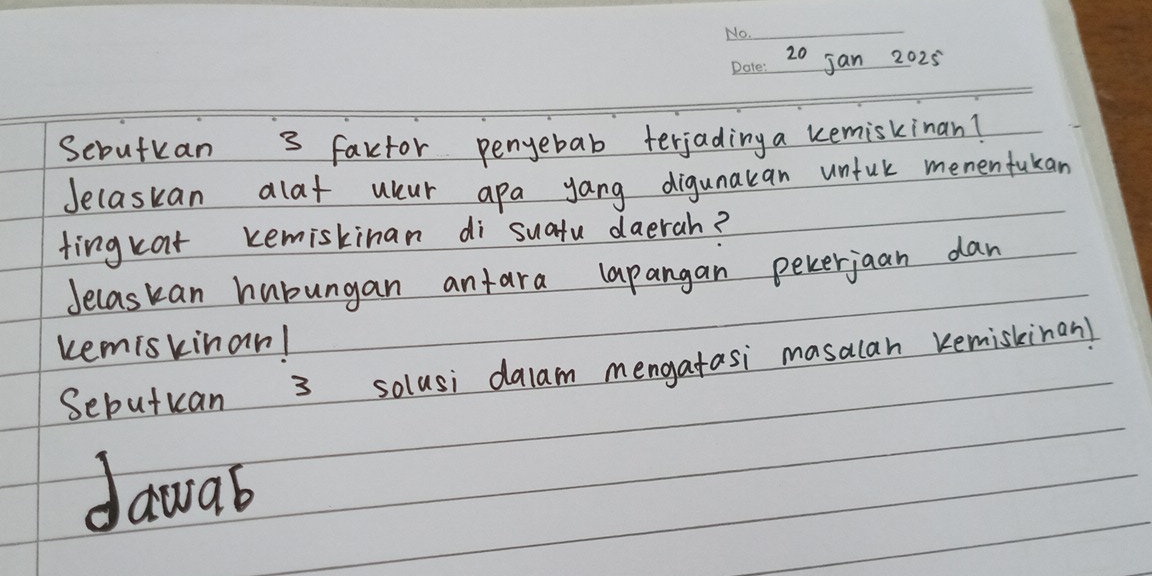 No.
Date: 20 Jan 2025
Sebutkan 3 faktor penyebab terjadinya kemiskinan!
Jelaskan alat ukur apa yang digunakan untuk menentukan
tingkat kemiskinan di suatu daerah?
Jelaskan hubungan antara lapangan pekerjaan dan
kemiskinan!
Sebutkan 3 solusi dalam mengatasi masalah kemiskinan!
Jawab